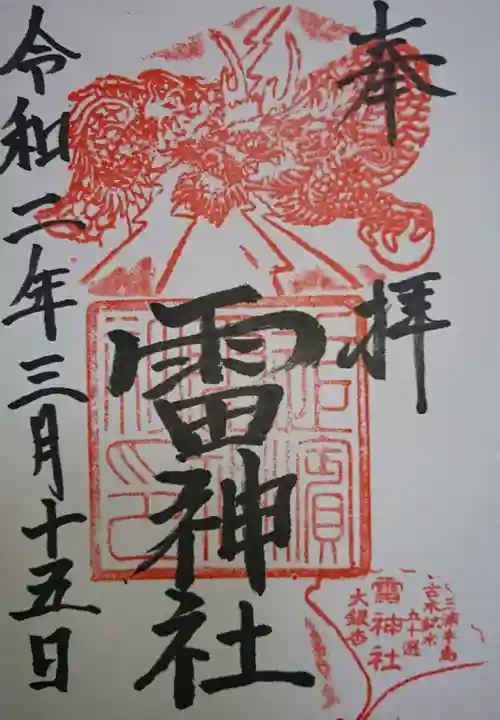 奉拝
雷神社
令和二年三月十五日
三浦半島
古木名木
五十選
雷神社
大銀杏